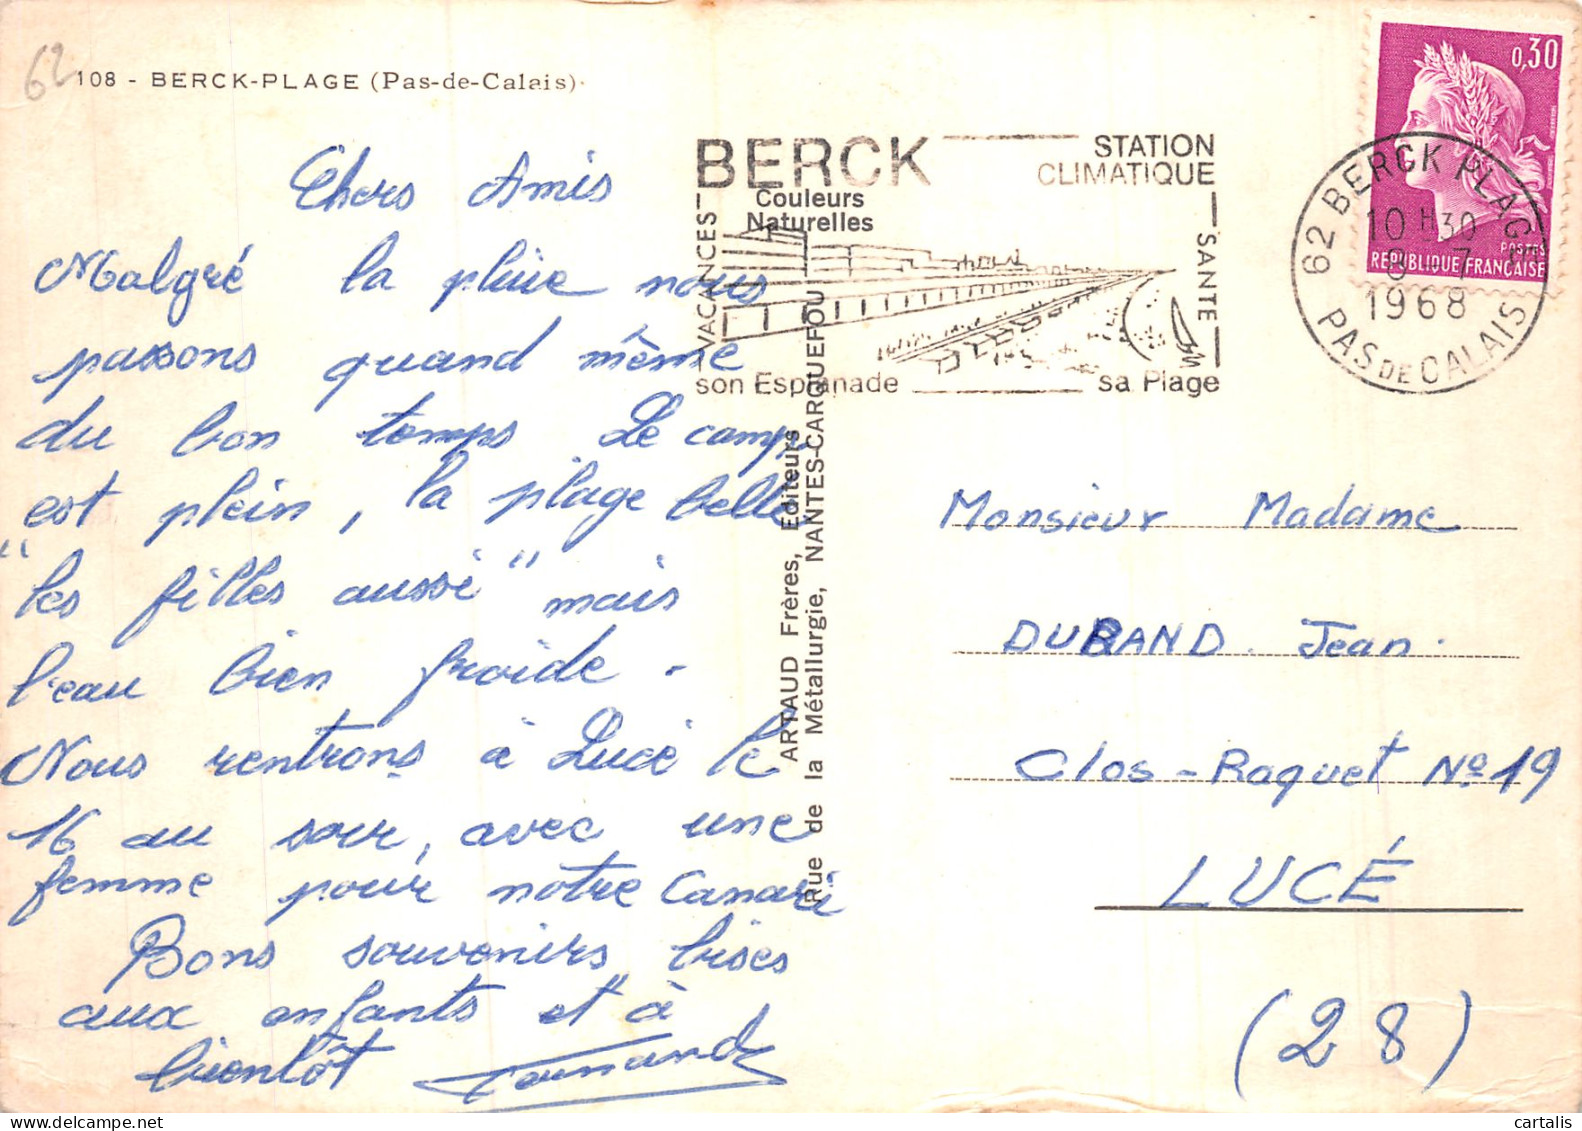 62
108 - BERCK-PLAGE (Pas-de-Calais)
Chers Amis
Malgré la pluie nous
passons quand même
du bon temps Le camp
est plein, la plage belle
"les filles aussi" mais
l'eau bien froide -
Nous rentrons à Lucé le
16 au soir, avec une
femme pour notre Canari
Bons souvenirs bises
aux enfants et à
bientôt Fernand
BERCK
STATION
CLIMATIQUE
Couleurs
Naturelles
VACANCES
SANTE
son Esplanade
sa Plage
ARTAUD Frères, Editeurs
Rue de la Métallurgie, NANTES-CARQUEFOU
0,30
POSTES
REPUBLIQUE FRANÇAISE
62 BERCK PLAGE
10 H30
8 - 7
1968
PAS DE CALAIS
Monsieur Madame
DURAND Jean
Clos-Raquet No 19
LUCÉ
(28)
cartalis